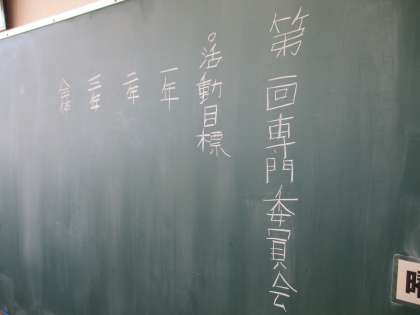 第一回専門委員会
○活動目標
一年
二年
三年
全体
曜